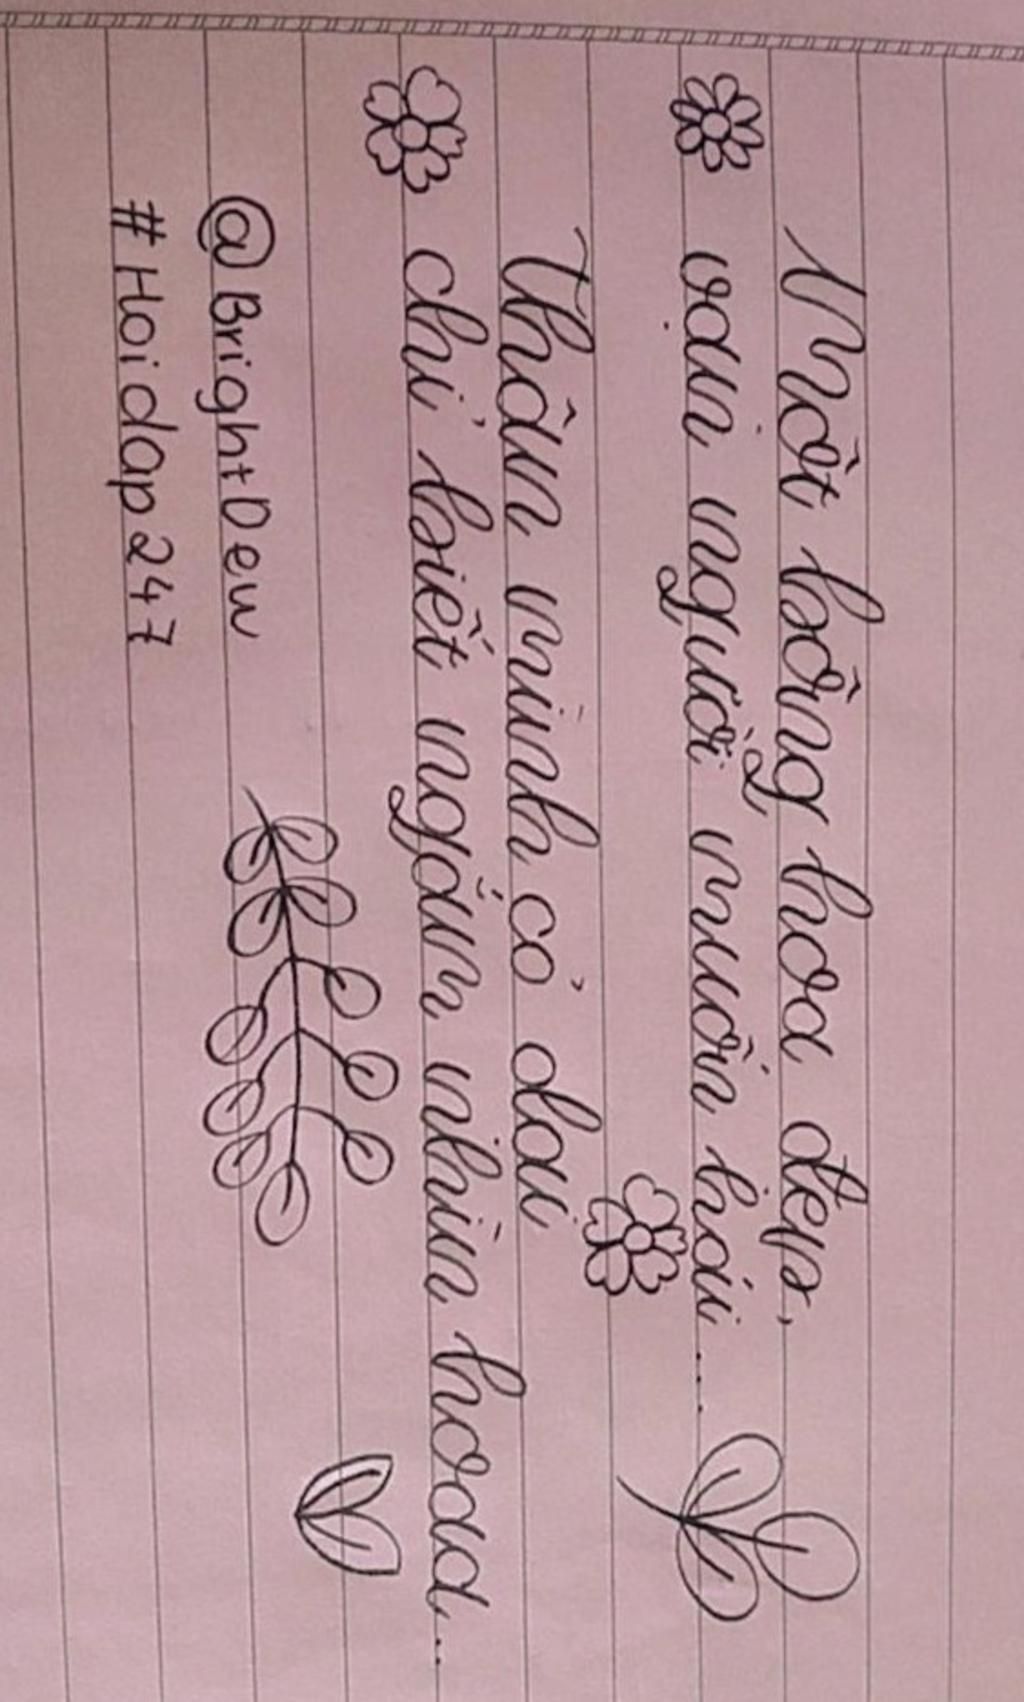 Một bông hoa đẹp,
vạn người muốn hái....
Thân mình cỏ dại
chỉ biết ngắm nhìn hoaa...
@BrightDew
#Hoidap247